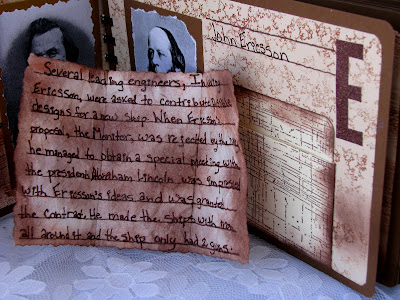 John Ericsson
E
Several leading engineers, 
Ericsson, were asked to contribute
designs for a new ship. When Ericson's
proposal, the Monitor, was rejected by the
he managed to obtain a special meeting with
the president. Abraham Lincoln was impressed
with Ericsson's ideas and was granted
the contract. He made the ships with iron
all around it and the ship only had 2 guns.